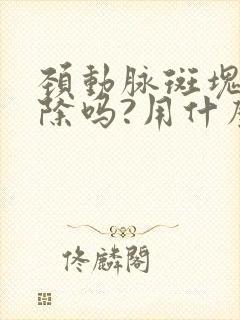 頸動脉斑塊
除吗?用什
佟麟閣